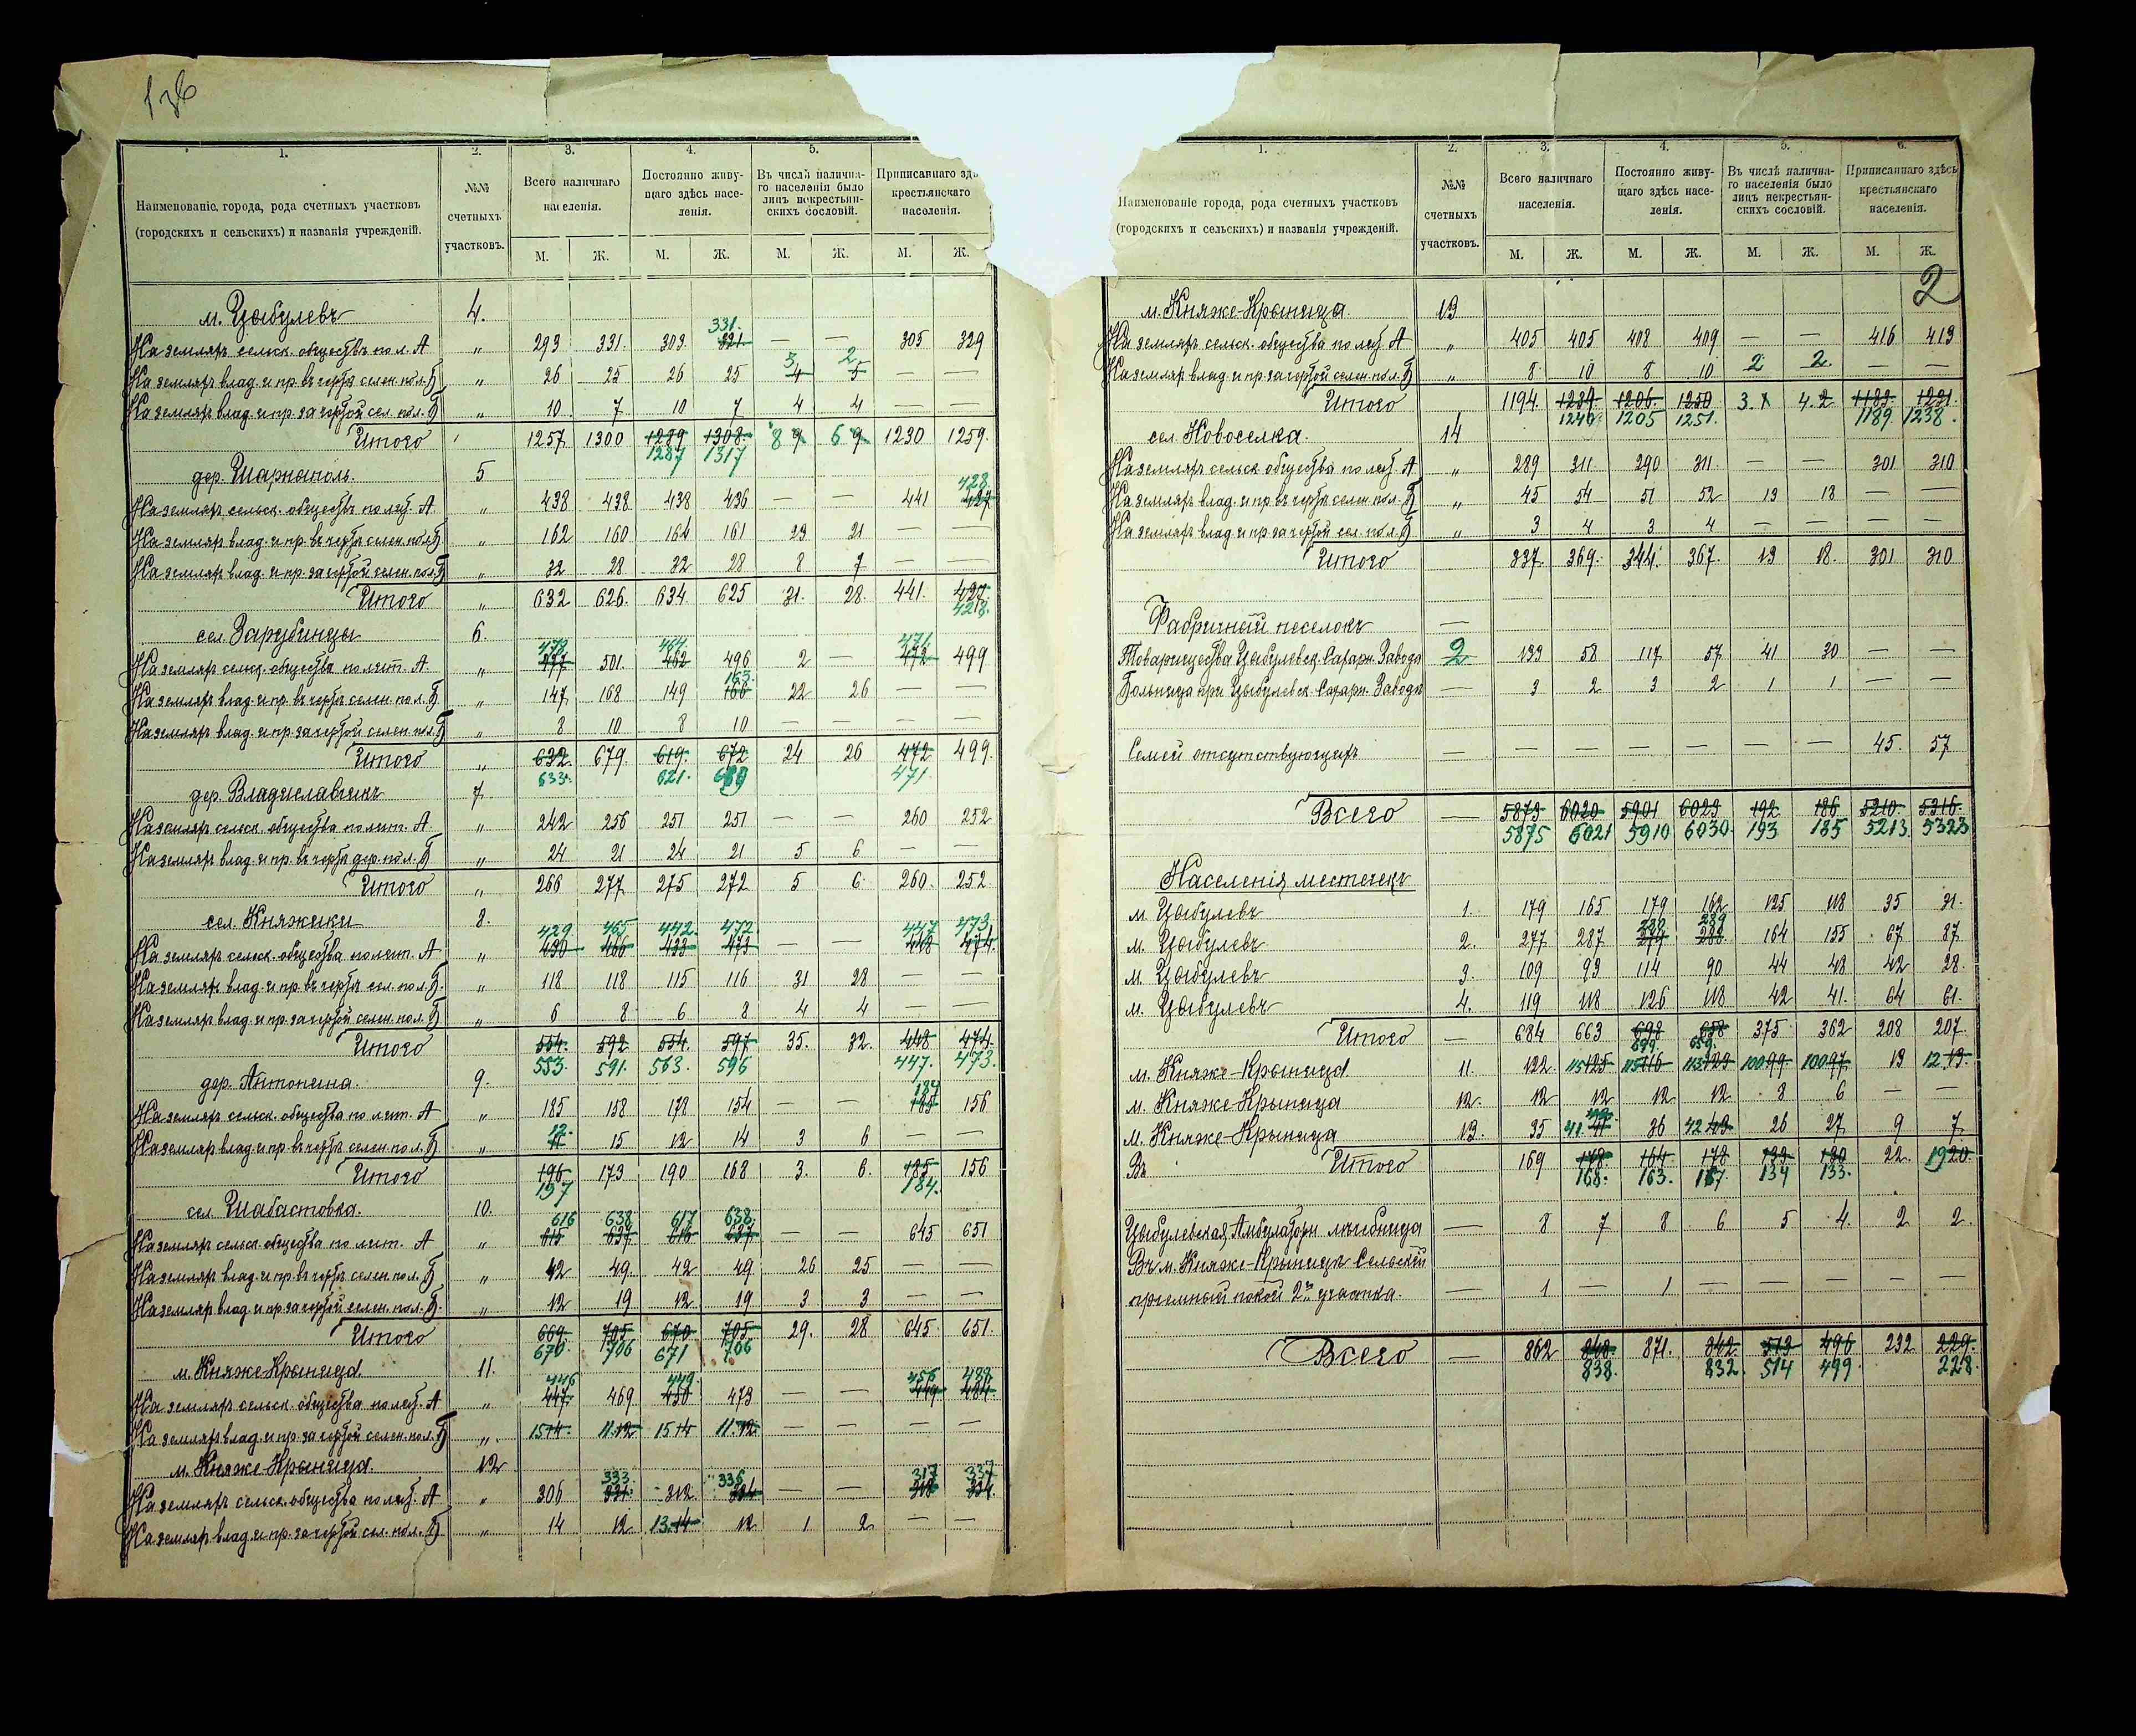 136
1. 2. 3. 4. 5.
Наименованіе города, рода счетныхъ участковъ (городскихъ и сельскихъ) и названія учрежденій.
№№ счетныхъ участковъ.
Всего наличнаго населенія.
Постоянно живущаго здѣсь населенія.
Въ числѣ наличнаго населенія было лицъ некрестьянскихъ сословій.
Приписаннаго здѣ крестьянскаго населенія.
М. Ж. М. Ж. М. Ж. М. Ж.
м. Цыбулевъ 4.
331.
На земляхъ сельск. обществъ по л. А " 293 331. 303. 321. — — 305 329
3 2
На земляхъ влад. и пр. въ чертѣ селен. пол. Б " 26 25 26 25 4 3 — —
На земляхъ влад. и пр. за чертой сел. пол. Б " 10 7 10 7 4 4 — —
Итого 1257 1300 1289 1308. 8 9 6 9 1230 1259.
1287 1317
дер. Шарнополь. 5
428
На земляхъ сельск. обществъ по лит. А " 438 438 438 436 — — 441 427
На земляхъ влад. и пр. въ чертѣ селен. пол. Б " 162 160 164 161 23 21 — —
На земляхъ влад. и пр. за чертой селен. пол. Б " 32 28 32 28 8 7 — —
Итого " 632 626. 634 625 31. 28. 441. 427.
428.
сел. Зарубинцы 6.
478 464 471
На земляхъ сельск. общества по лит. А " 477 501. 462 496 2 — 472 499
163.
На земляхъ влад. и пр. въ чертѣ селен. пол. Б " 147 168 149 166 22 26 — —
На земляхъ влад. и пр. за чертой селен. пол. Б " 8 10 8 10 — — — —
Итого " 632 679 619. 672 24 26 472 499.
633. 621. 669 471
дер. Владиславчикъ 7.
На земляхъ сельск. общества по лит. А " 242 256 251 251 — — 260 252
На земляхъ влад. и пр. въ чертѣ дер. пол. Б " 24 21 24 21 5 6 — —
Итого " 266 277 275 272 5 6 260. 252
сел. Княжики 8.
429 465 442. 472. 447 473.
На земляхъ сельск. общества по лит. А " 430 466 433 473 — — 448 474.
На земляхъ влад. и пр. въ чертѣ сел. пол. Б. " 118 118 115 116 31 28 — —
На земляхъ влад. и пр. за чертой селен. пол. Б " 6 8 6 8 4 4 — —
Итого 554. 592 554. 597 35. 32. 448 474.
553. 591. 563. 596 447. 473.
дер. Антонина. 9.
184
На земляхъ сельск. общества по лит. А " 185 158 178 154 — — 185 156
12.
На земляхъ влад. и пр. въ чертѣ селен. пол. Б " 11 15 12 14 3 6 — —
Итого 196 173 190 168 3. 6. 185 156
197 184.
сел. Шабастовка. 10.
616 638 617 638.
На земляхъ сельск. общества по лит. А " 615 637 616 637 — — 645 651
На земляхъ влад. и пр. въ чертѣ селен. пол. Б " 42 49. 42 49 26 25 — —
На земляхъ влад. и пр. за чертой селен. пол. Б. " 12 19 12 19 3 3 — —
Итого 669. 705 670 705. 29. 28 645 651
670. 706 671 706
м. Княже-Крыница 11.
446 449. 456 489
На земляхъ сельск. общества по лит. А " 447. 469 450 473 — — 449 484.
На земляхъ влад. и пр. за чертой селен. пол. Б " 15 14. 11 12 15 14 11. 12. — — — —
м. Княже-Крыница. 12
333. 336 317 337
На земляхъ сельск. общества по лит. А " 306 331. 312 334 — — 318 334.
На земляхъ влад. и пр. за чертой сел. пол. Б " 14 12 13. 14 12 1 2 — —
1. 2. 3. 4. 5. 6.
Наименованіе города, рода счетныхъ участковъ (городскихъ и сельскихъ) и названія учрежденій.
№№ счетныхъ участковъ.
Всего наличнаго населенія.
Постоянно живущаго здѣсь населенія.
Въ числѣ наличнаго населенія было лицъ некрестьянскихъ сословій.
Приписаннаго здѣсь крестьянскаго населенія.
М. Ж. М. Ж. М. Ж. М. Ж.
2
м. Княже-Крыница. 13
На земляхъ сельск. общества по лит. А " 405 405 408 409 — — 416 413
На земляхъ влад. и пр. за чертой селен. пол. Б " 8 10 8 10 2 2. — —
Итого 1194. 1239. 1206. 1250 3. 1 4. 2 1183. 1231.
1240 1205 1251. 1189 1238.
сел. Новоселка. 14
На земляхъ сельск. общества по лит. А " 289 311 290 311 — — 301 310
На земляхъ влад. и пр. въ чертѣ селен. пол. Б " 45 54 51 52 13 18 — —
На земляхъ влад. и пр. за чертой сел. пол. Б " 3 4 3 4 — — — —
Итого 337 369. 344. 367. 13 18. 301 310
Фабричный поселокъ —
Товарищества Цыбулевск. Сахарн. Завода 2 133 58 117 57 41 30 — —
Больница при Цыбулевск. Сахарн. Заводѣ — 3 2 3 2 1 1 — —
Семей отсутствующихъ — — — — — — — 45. 57
Всего — 5873 6020 5901 6023 192 186 5210. 5316.
5875 6021 5910 6030 193 185 5213 5323
Населенія местечекъ
м. Цыбулевъ 1. 179 165 179 162 125 118 35 31.
280 289
м. Цыбулевъ 2. 277 287 279 288 164 155 67 87
м. Цыбулевъ 3. 109 93 114 90 44 48 42 28.
м. Цыбулевъ 4. 119 118 126 118 42 41. 64 61.
Итого — 684 663 698 658 375 362 208 207
699. 659.
м. Княже-Крыница 11. 122 115 125 115 116 113 123 100 99 100 97 13 12 13.
м. Княже-Крыница 12. 12 12 12 12 8 6 — —
м. Княже-Крыница 13. 35 41 41 36 42 43 26 27 9 7
Въ Итого 169 178 164 178 133 130 22. 19 20.
168. 163. 167. 134 133.
Цыбулевская Амбулаторн. лечебница — 8 7 8 6 5 4. 2 2.
Въ м. Княже-Крыницѣ Сельскій
приемный покой 2го участка. — 1 — 1 — — — — —
Всего — 862 848. 871. 842. 513 496 232 229.
838. 832. 514 499. 228.